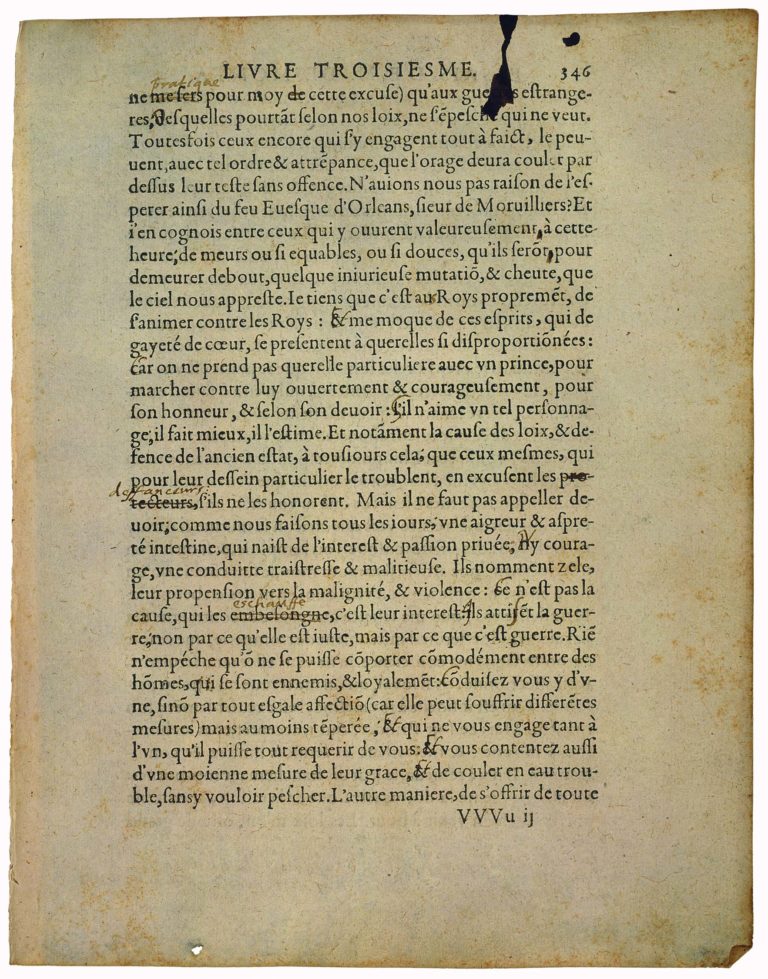 LIVRE TROISIESME. 346
pratique
ne me sers pour moy de cette excuse) qu'aux guerres estrange-
res, desquelles pourtãt selon nos loix, ne s'ẽpesche qui ne veut.
Toutesfois ceux encore qui s'y engagent tout à faict, le peu-
uent, auec tel ordre & attrẽpance, que l'orage deura couler par
dessus leur teste sans offence. N'auions nous pas raison de l'es-
perer ainsi du feu Euesque d'Orleans, sieur de Moruilliers? Et
i'en cognois entre ceux qui y ouurent valeureusement, à cette
heure, de meurs ou si equables, ou si douces, qu'ils serõt, pour
demeurer debout, quelque iniurieuse mutatiõ, & cheute, que
le ciel nous appreste. Ie tiens que c'est aux Roys propremẽt, de
s'animer contre les Roys : & me moque de ces esprits, qui de
gayeté de cœur, se presentent à querelles si disproportiõnées :
Car on ne prend pas querelle particuliere auec vn prince, pour
marcher contre luy ouuertement & courageusement, pour
son honneur, & selon son deuoir : S'il n'aime vn tel personna-
ge, il fait mieux, il l'estime. Et notãment la cause des loix, & de-
fence de l'ancien estat, à tousiours cela, que ceux mesmes, qui
pour leur dessein particulier le troublent, en excusent les pro-
deffanceurs
tecteurs, s'ils ne les honorent. Mais il ne faut pas appeller de-
uoir, comme nous faisons tous les iours, vne aigreur & aspre-
té intestine, qui naist de l'interest & passion priuée, Ny coura-
ge, vne conduitte traistresse & malitieuse. Ils nomment zele,
leur propension vers la malignité, & violence : Ce n'est pas la
eschauffe
cause, qui les embesongne, c'est leur interest: Ils attisẽt la guer-
re, non par ce qu'elle est iuste, mais par ce que c'est guerre. Riẽ
n'empéche qu'õ ne se puisse cõporter cõmodément entre des
hõmes, qui se sont ennemis, & loyalemẽt: Cõduisez vous y d'v-
ne, sinõ par tout esgale affectiõ (car elle peut souffrir differẽtes
mesures) mais au moins tẽperée, & qui ne vous engage tant à
l'vn, qu'il puisse tout requerir de vous: & vous contentez aussi
d'vne moienne mesure de leur grace, & de couler en eau trou-
ble, sans y vouloir pescher. L'autre maniere, de s'offrir de toute
VVVu ij